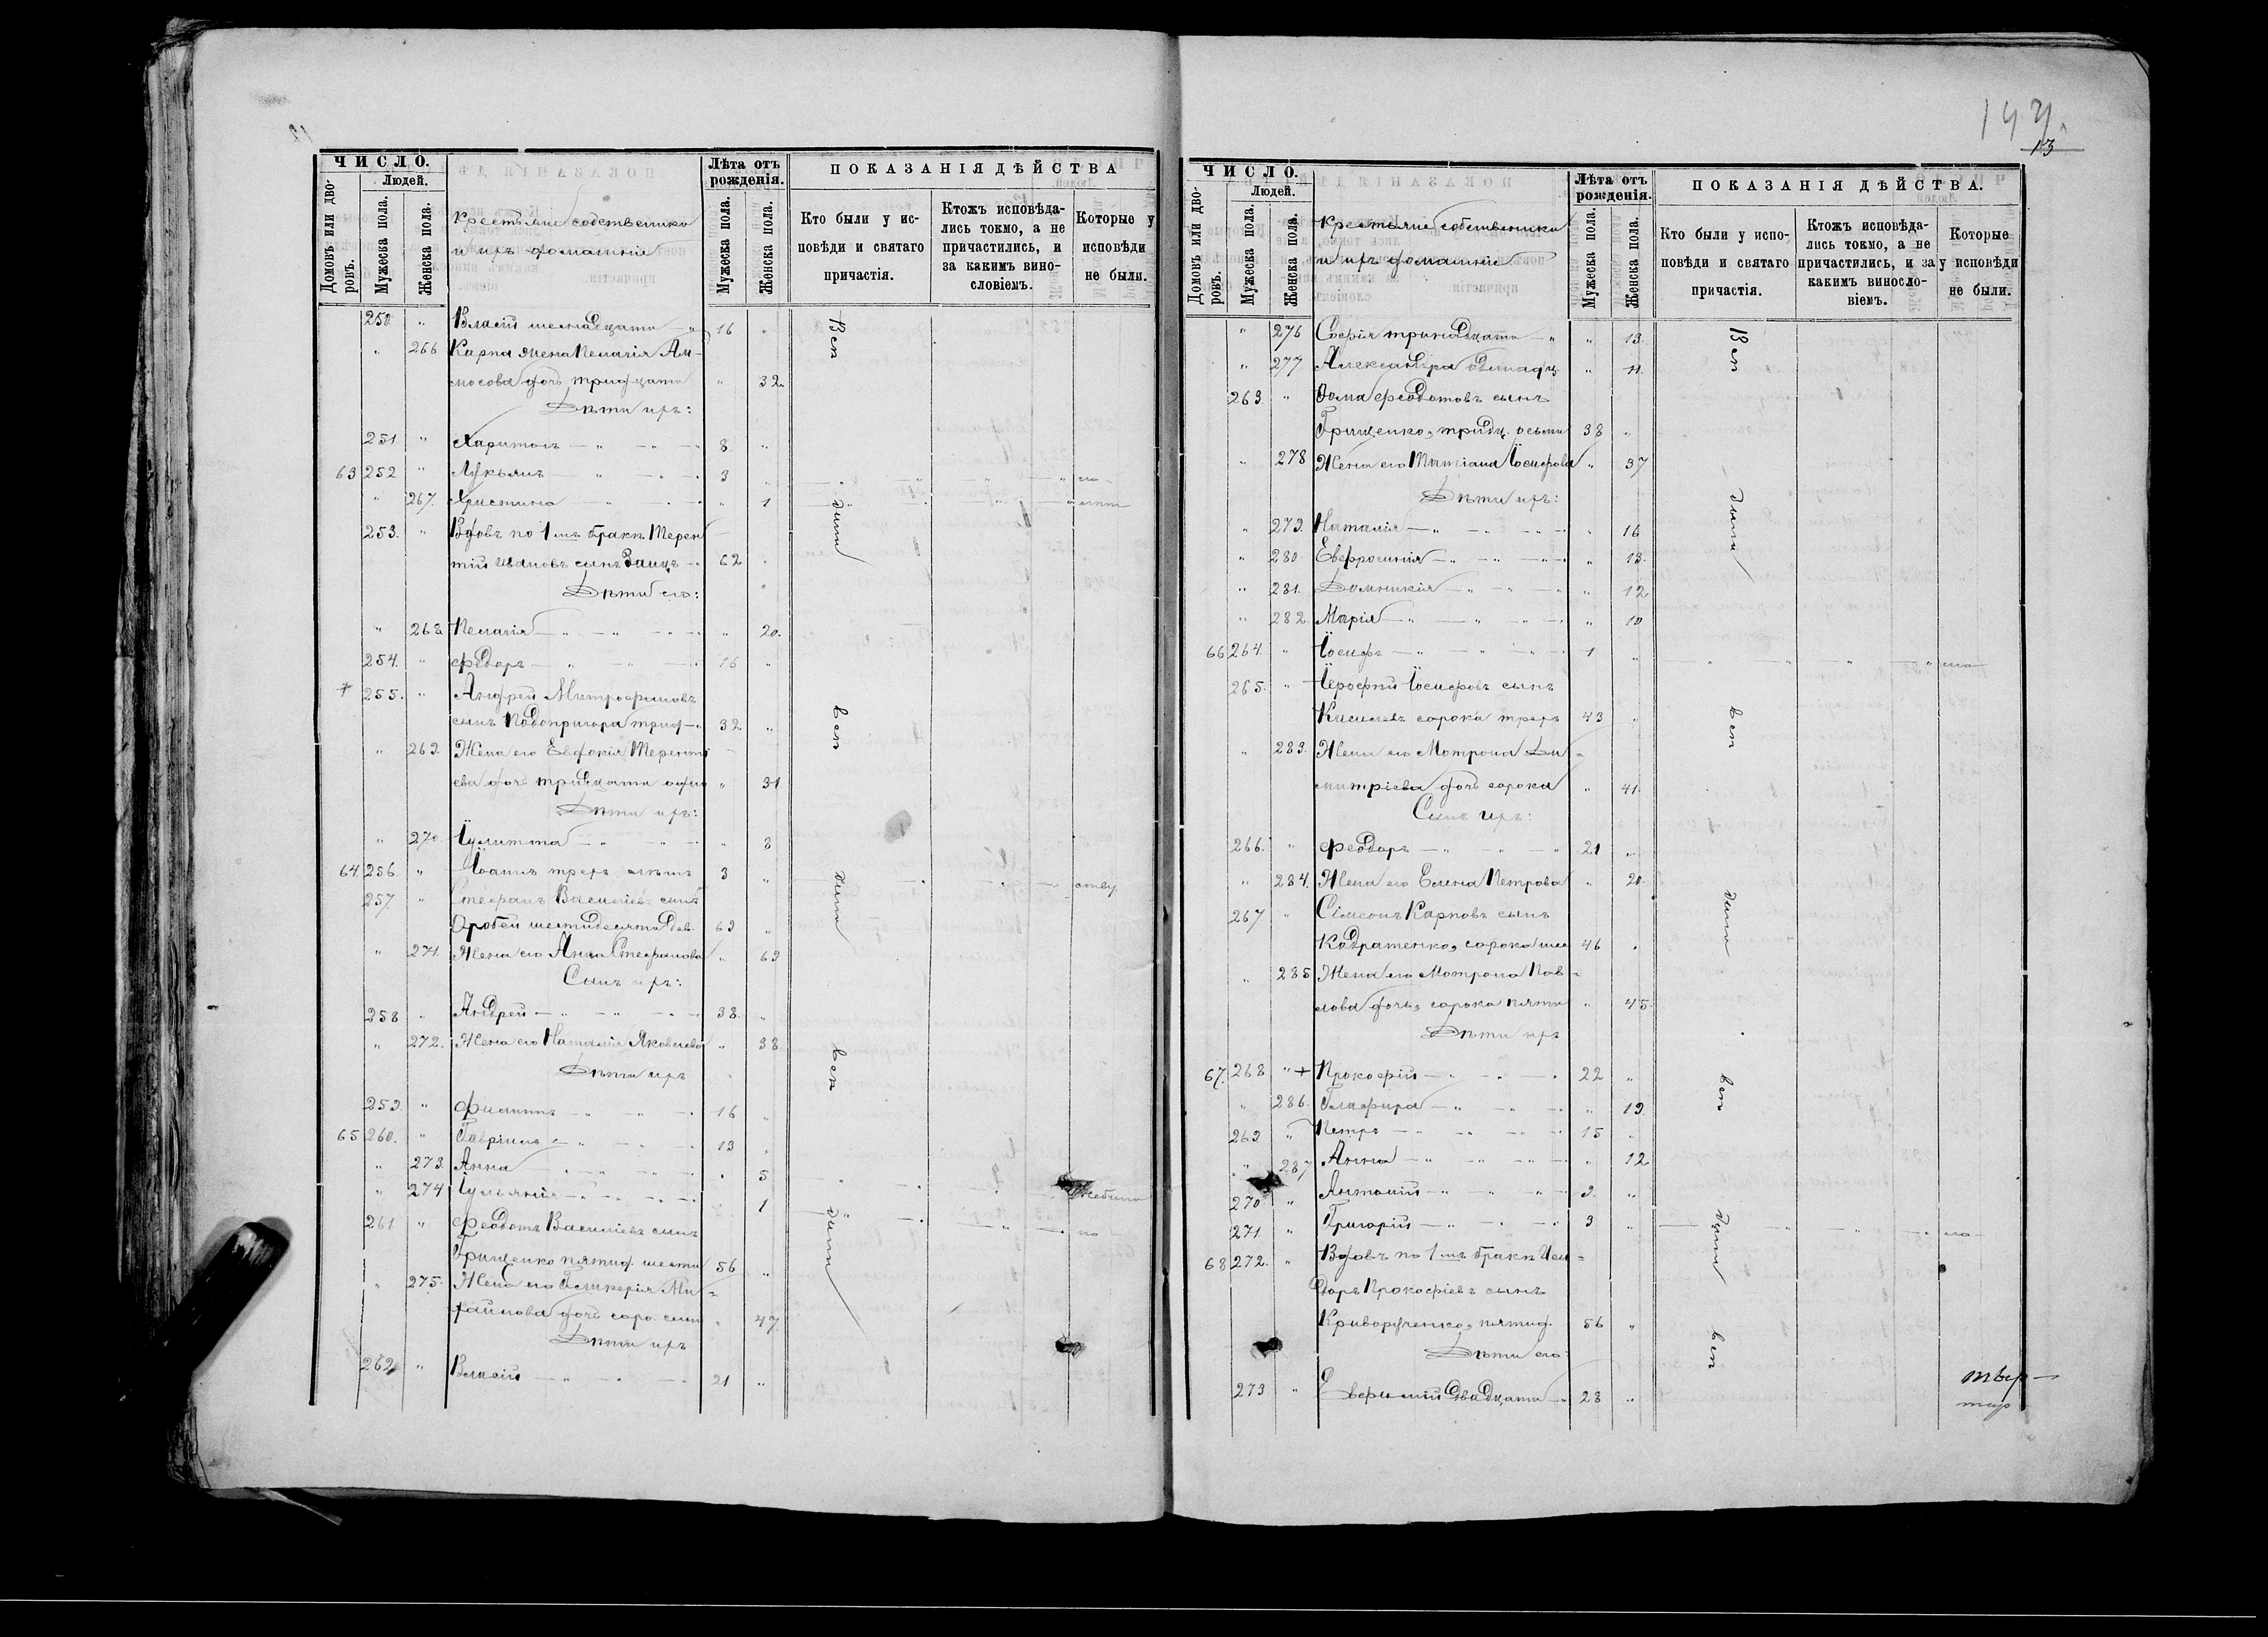 143
13
ЧИСЛО.
Людей.
Домовъ или дворовъ.
Мужеска пола.
Женска пола.
Крестьяне собственники
и ихъ домашніе
Лѣта отъ рожденія.
Мужеска пола.
Женска пола.
ПОКАЗАНІЯ ДѢЙСТВА
Кто были у исповѣди и святаго причастія.
Ктожъ исповѣдались токмо, а не причастились, и за какимъ винословіемъ.
Которые у исповѣди не были.
250 " Власій шестнадцати 16 "
" 266 Карпа жена Пелагія Ам-
мосова дочь тридцати " 32.
Дѣти ихъ:
251 " Харитонъ 8 "
63 252 " Лукьянъ 3 "
" 267. Христина " 1
253. " Вдовъ по 1мъ бракѣ Терен
тій Ивановъ сынъ Заяцъ 62 "
Дѣти его:
" 268 Пелагія " 20.
254. " Федоръ 16 "
255. " Андрей Митрофановъ
сынъ Подопригора трид 32 "
" 269. Жена его Евдокія Теренті
ева дочь тридцати одно " 31
Дѣти ихъ:
" 270 Іулитта " 8
64. 256. " Іоаннъ трехъ лѣтъ 3 "
257 " Стефанъ Василіевъ сынъ
шестидесяти дев. 69 "
" 271. Жена его Анна Стефанова " 69
Сынъ ихъ:
258 " Андрей 38. "
" 272. Жена его Наталія Яковлева " 38
Дѣти ихъ
259. " Филиппъ 16 "
65 260. " Гавріилъ 13 "
" 273. Анна " 5
" 274 Іульянія " 1
261 " Феодотъ Василіевъ сынъ
Грищенко пятид. шести 56 "
" 275. Жена его Гликерія Ми-
хайлова дочь соро. семи " 47.
Дѣти ихъ
262 " Власій 21 "
Вси
Дили
вси
Дили
вси
Дили
ЧИСЛО.
Людей.
Домовъ или дворовъ.
Мужеска пола.
Женска пола.
Крестьяне собственники
и ихъ домашніе
Лѣта отъ рожденія.
Мужеска пола.
Женска пола.
ПОКАЗАНІЯ ДѢЙСТВА.
Кто были у исповѣди и святаго причастія.
Ктожъ исповѣдались токмо, а не причастились, и за какимъ винословіемъ.
Которые у исповѣди не были.
" 276 Софія тринадцати " 13.
" 277 Александра одинадц " 11.
263 " Ѳома Феодотовъ сынъ
Грищенко, тридц. осьми 38 "
" 278 Жена его Татіана Іосифова " 37
Дѣти ихъ:
" 279. Наталія " 16
" 280 Евфросинія " 13.
" 281. Домникія " 12
" 282. Марія " 10
66 264. " Іосифъ 1 "
265. " Іерофей Іосифовъ сынъ
Киселевъ сорока трехъ 43 "
" 283. Жена его Мотрона Ди-
митріева дочь сорока " 41.
Сынъ ихъ:
266. " Феодоръ 21 "
" 284. Жена его Елена Петрова " 20.
267 " Сімеонъ Карповъ сынъ
Кодратенко, сорока шес 46 "
" 285 Жена его Мотрона Пав-
лова дочь, сорока пяти " 45.
Дѣти ихъ
67. 268 " + Прокофій 22 "
" 286. Глафира " 19
269 " Петръ 15 "
" 287 Анна " 12
270 " Антоній 9. "
271 " Григорій 3 "
68 272. " Вдовъ по 1мъ бракѣ Иси-
доръ Прокофіевъ сынъ
Криворученко, пятид. 56 "
Дѣти его:
273 " двадцати 28 "